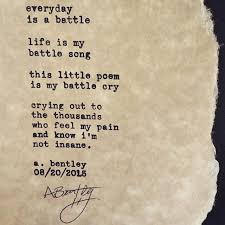 everyday
is a battle
life is my
battle song
this little poem
is my battle cry
crying out to
the thousands
who feel my pain
and know i'm
not insane.
a. bentley
08/20/2015
ABentley